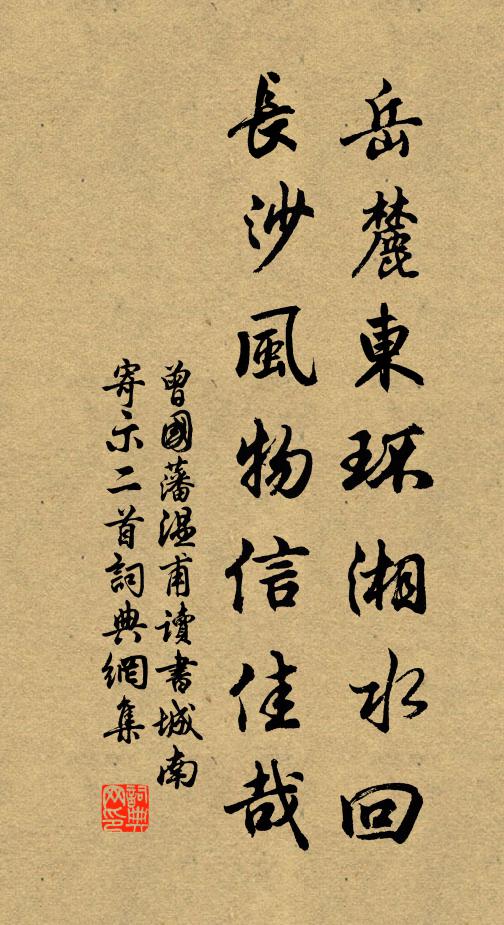 岳麓東環湘水回
長沙風物信佳哉
曾國藩温甫讀書城南
寄示二首詞典網集
詞典
网印